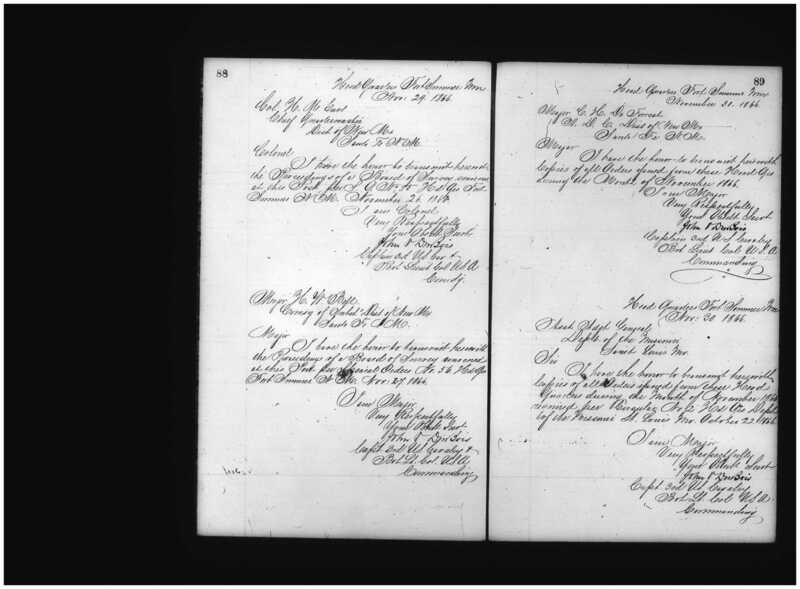 88
Head Quarters Fort Sumner N.M.
Nov. 29. 1866.
Col. H. M.
Chief Quartermaster
Dist of New Mex
Santa Fe N.M.
Colonel
I have the honor to transmit herewith
the Proceedings of a Board of Survey convened
at this Post per S.O. No Hd Qrs Fort
Sumner N.M. November 26. 1866.
I am Colonel
Very Respectfully
Your Obt Servt
John V DuBois
Captain 3d US Cav &
Bvt Lieut Col U.S.A.
Comdg.
Major H. W.
Comsry of Dist of New Mex
Santa Fe N.M.
Major
I have the honor to transmit herewith
the Proceedings of a Board of Survey convened
at this Post per Special Orders No. 56 Hd Qrs
Fort Sumner N.M. Nov. 27. 1866.
I am Major
Very Respectfully
Your Obdt Servt
John V DuBois
Capt 3d US Cavalry &
Bvt Lt. Col. U.S.A.
Commanding
89
Head Quarters Fort Sumner N.M.
November 30. 1866.
Major C. H. De Forrest
A. D. C. Dist of New Mex
Santa Fe N.M.
Major
I have the honor to transmit herewith
Copies of all Orders issued from these Head Qrs
during the Month of November 1866.
I am Major
Very Respectfully
Your Obdt Servt
John V DuBois
Captain 3rd U.S. Cavalry
Bvt Lieut Col. U.S.A.
Commanding
Head Quarters Fort Sumner N.M.
Nov. 30 1866.
Asst Adjt General
Dept. of the Missouri
Saint Louis Mo.
Sir
I have the honor to transmit herewith
copies of all Orders issued from these Head
Quarters during the Month of November 1866
required per Circular No 2 Hd Qrs Dept
of the Missouri St. Louis Mo. October 22. 1866.
I am Major
Very Respectfully
Your Obdt Servt
John V DuBois
Capt. 3rd US Cavalry
Bvt Lt. Col. U.S.A.
Commanding